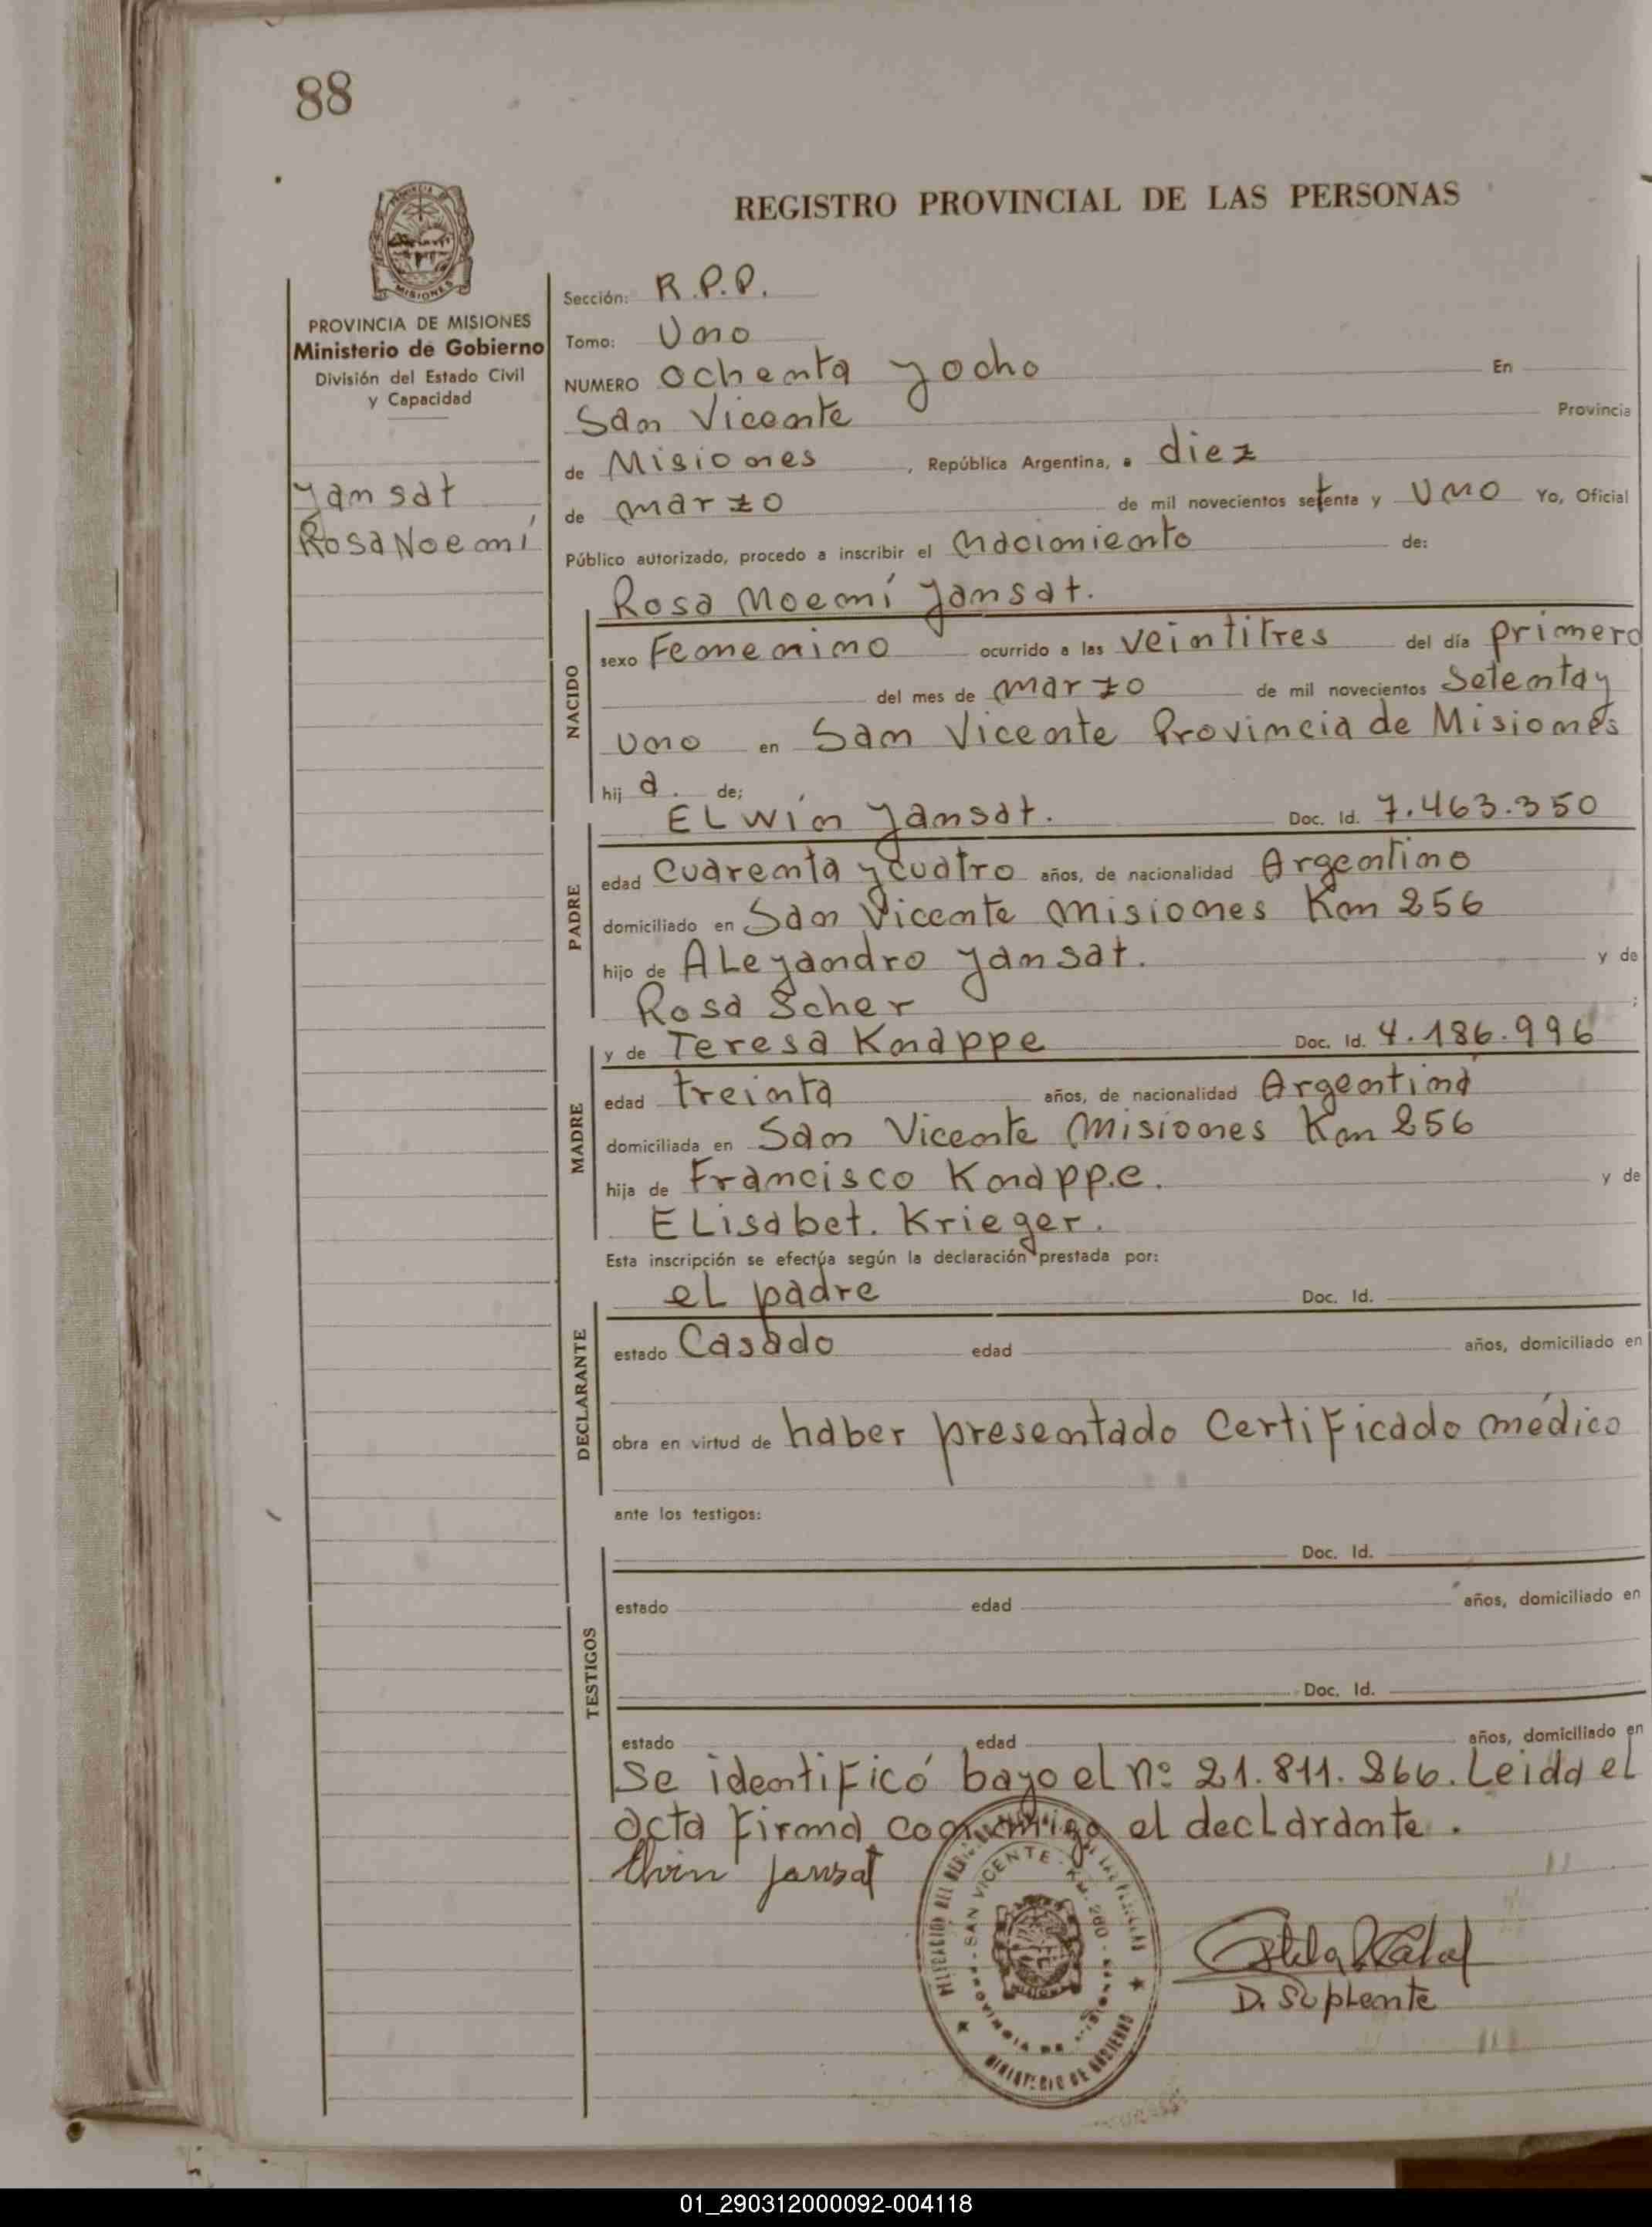 88
REGISTRO PROVINCIAL DE LAS PERSONAS
MISIONES
PROVINCIA DE MISIONES
Ministerio de Gobierno
División del Estado Civil
y Capacidad
Jansat
Rosa Noemí
Sección: R.P.P.
Tomo: Uno
NUMERO ochenta y ocho En
San Vicente Provincia
de Misiones , República Argentina, a diez
de marzo de mil novecientos setenta y uno Yo, Oficial
Público autorizado, procedo a inscribir el nacimiento de:
Rosa Noemí Jansat.
NACIDO
sexo Femenino ocurrido a las veintitres del día primero
del mes de marzo de mil novecientos setenta y
uno en San Vicente Provincia de Misiones
hij a. de;
ELwin Jansat. Doc. Id. 7.463.350
PADRE
edad cuarenta y cuatro años, de nacionalidad Argentino
domiciliado en San Vicente misiones Km 256
hijo de ALejandro Jansat. y de
Rosa Scher ;
y de Teresa Knappe Doc. Id. 4.186.996
MADRE
edad treinta años, de nacionalidad Argentina
domiciliada en San Vicente misiones Km 256
hija de Francisco Knappe. y de
ELisabet. Krieger.
Esta inscripción se efectúa según la declaración prestada por:
eL padre Doc. Id.
DECLARANTE
estado Casado edad años, domiciliado en
obra en virtud de haber presentado Certificado médico
ante los testigos:
Doc. Id.
TESTIGOS
estado edad años, domiciliado en
Doc. Id.
estado edad años, domiciliado en
Se identificó bajo el nº 21.811.266. Leida el
acta firma conmigo el decLarante.
Elvin Jansat
SAN VICENTE - KM. 260 - PROVINCIA DE MISIONES
MINISTERIO DE GOBIERNO
D. SupLente
01_290312000092-004118